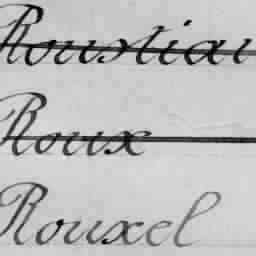 Roustiau
Roux
Rouxel